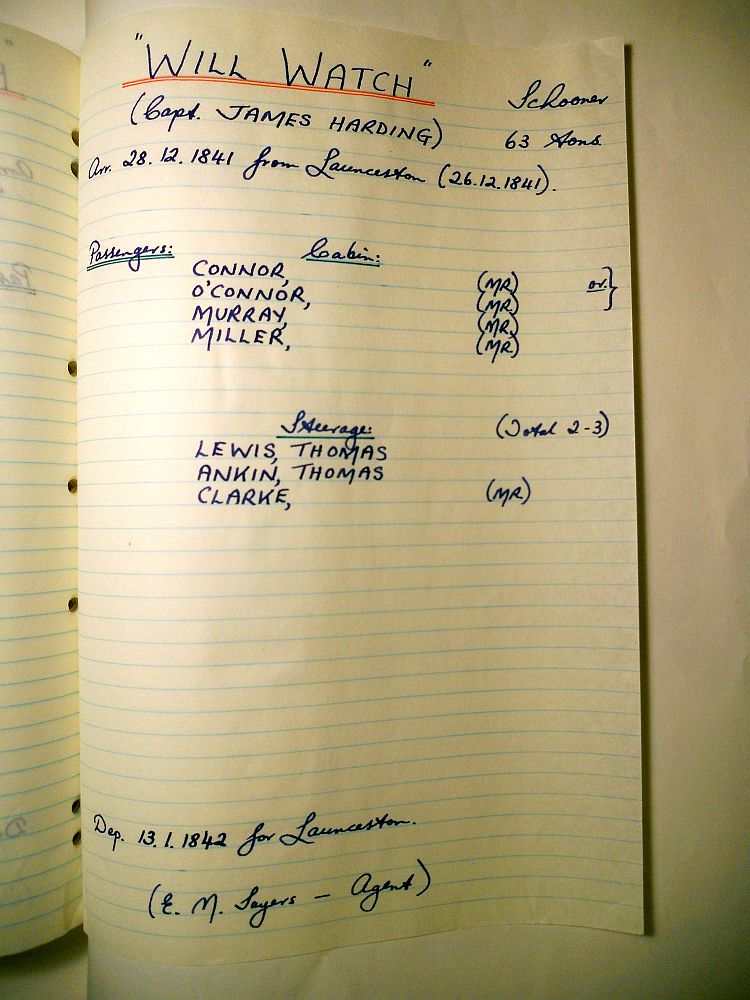 "WILL WATCH"
Schooner
(Capt. JAMES HARDING)
63 tons
Arr. 28.12.1841 from Launceston (26.12.1841).
Passengers: Cabin:
CONNOR, (MR) or }
O'CONNOR, (MR)
MURRAY, (MR)
MILLER, (MR)
Steerage: (Total 2-3)
LEWIS, THOMAS
ANKIN, THOMAS
CLARKE, (MR)
Dep. 13.1.1842 for Launceston.
(E. M. Sayers - Agent)